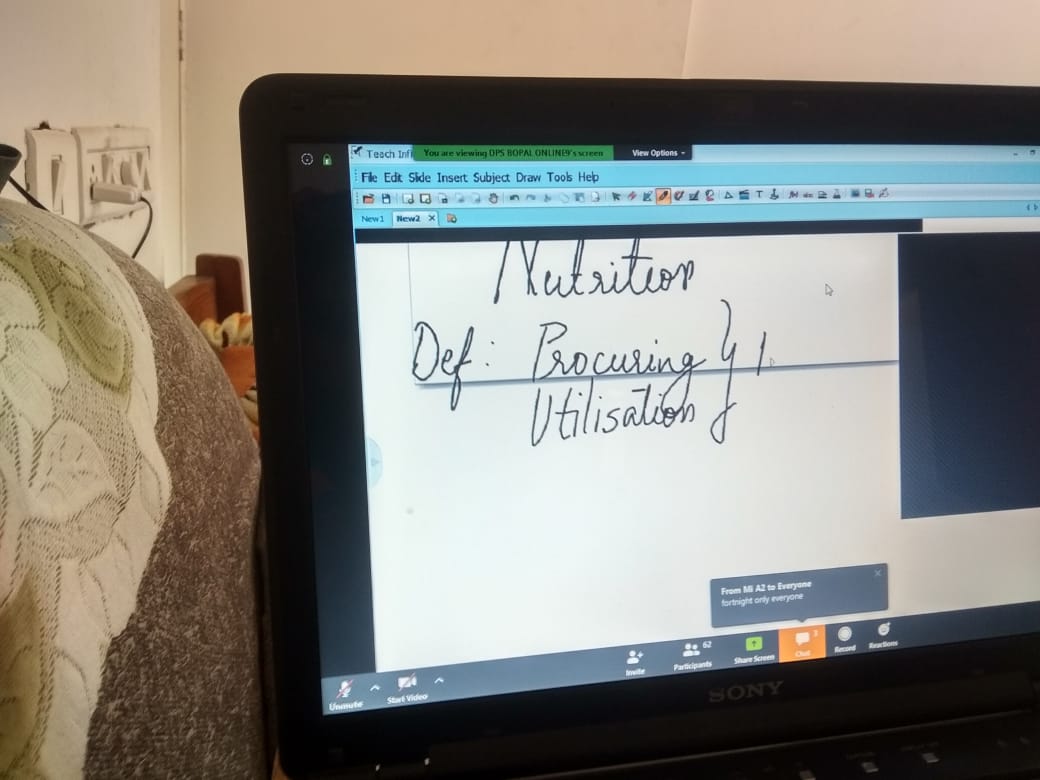 Teach Inf
You are viewing DPS BOPAL ONLINE9's screen
View Options
File Edit Slide Insert Subject Draw Tools Help
New1 New2
Nutrition
Def: Procuring
Utilisation
From Mi A2 to Everyone
fortnight only everyone
Unmute
Start Video
Invite
62
Participants
Share Screen
3
Chat
Record
Reactions
SONY